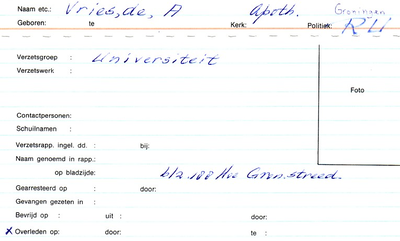 Naam etc.: Vries, de, A Apoth. Groningen
Geboren: te Kerk: Politiek:
Verzetsgroep : Universiteit
Verzetswerk :
Foto
Contactpersonen:
Schuilnamen :
Verzetsrapp. ingel. dd. : bij:
Naam genoemd in rapp.:
op bladzijde: blz. 188
Gearresteerd op : door:
Gevangen gezeten in :
Bevrijd op : uit : door:
x Overleden op: door: te :